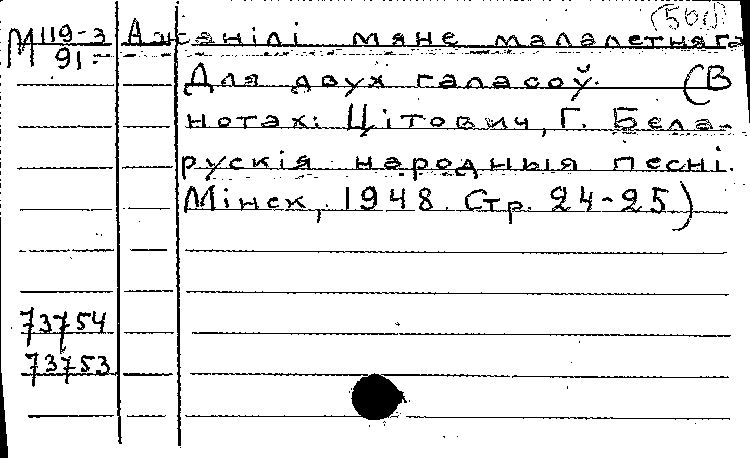 (500)
М 119-3 Ажанілі мяне малалетняга
91
Для двух галасоў. (В
нотах: Цітович, Г. Бела-
рускія народныя песні.
Мінск, 1948. Стр. 24-25)
73754
73753